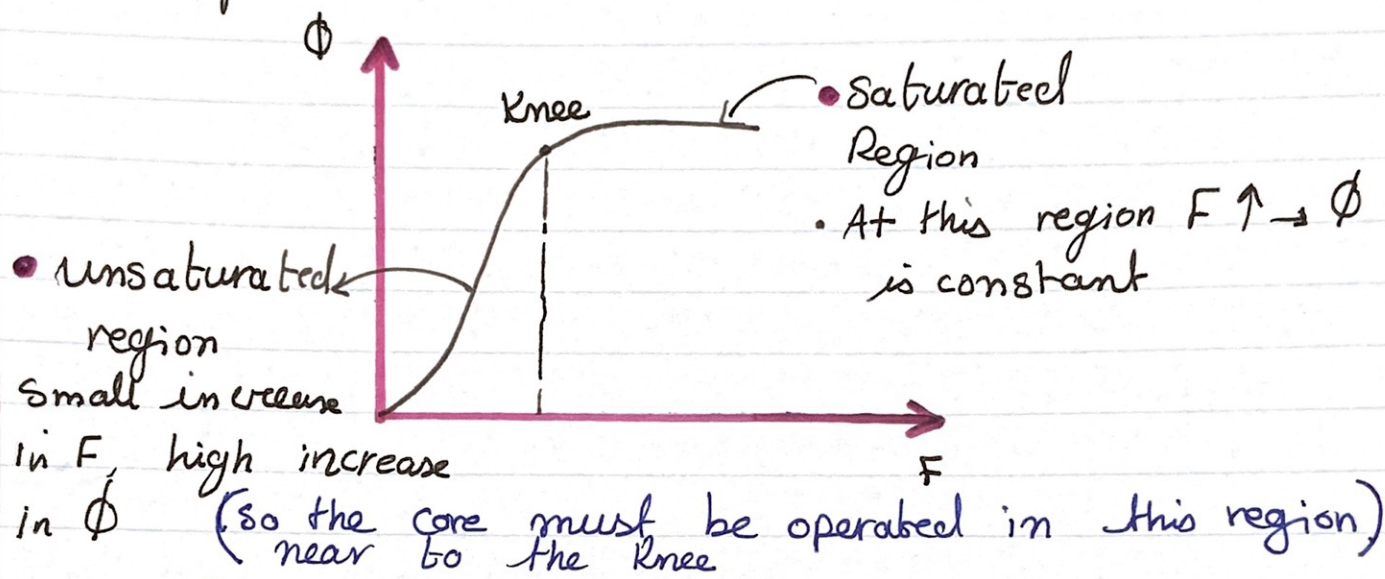 Φ
Knee
• Saturated
Region
• At this region F ↑ → Φ
is constant
• Unsaturated
region
small increase
in F, high increase
in Φ (so the core must be operated in this region)
near to the knee
F